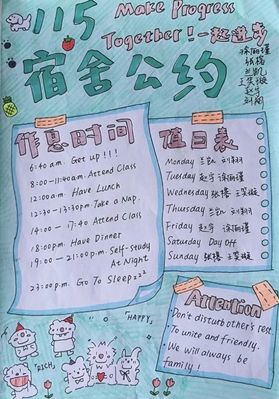 115
Make Progress
Together!一起进步
宿舍公约
张楊
赵宇
刘翔
作息时间
6:40a.m. Get up!!!
8:00-11:40a.m. Attend Class
12:00a.m. Have Lunch
12:30-13:30p.m. Take a Nap.
14:00-17:40 Attend Class
18:00p.m. Have Dinner
19:00-21:00p.m. Self-Study
At Night
23:00p.m. Go To Sleepzzz
值日表
Monday
Tuesday 赵宇
Wednesday 张楊
Thursday
Friday 赵宇
Saturday Day Off
Sunday 张楊
Attention
· Don't disturb other's rest
· To unite and friendly.
· We will always be
family!
"HAPPY"
"RICH"